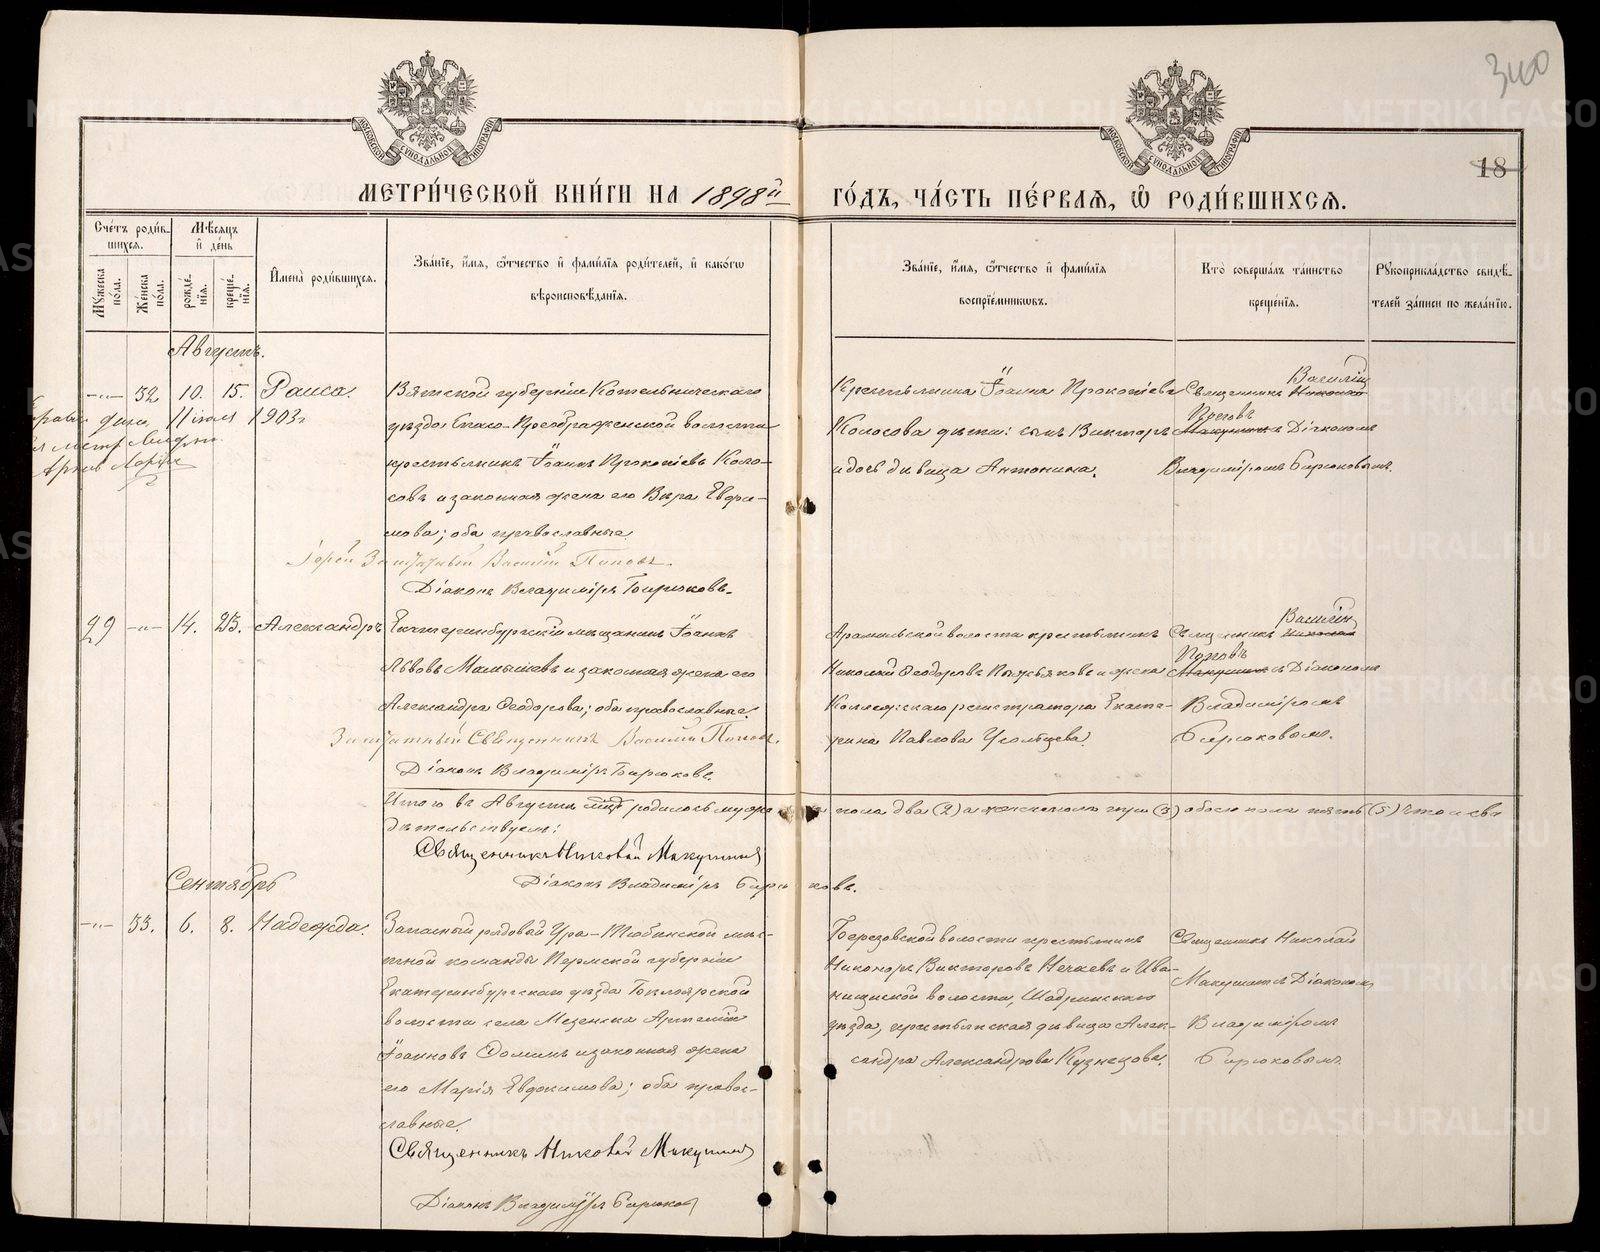 340
18
МЕТРИ́ЧЕСКОЙ КНИ́ГИ НА 1898й ГО́ДЪ, ЧА́СТЬ ПЕ́РВАЯ, Ѽ РОДИ́ВШИХСЯ.
Сче́тъ роди́вшихся.
Мѣ́сяцъ и де́нь
Му́жеска по́ла.
Же́нска по́ла.
рожде́нїя.
креще́нїя.
Имена̀ роди́вшихся.
Зва́нїе, и́мя, ѻ́тчество и фами́лїя роди́телей, и како́гѡ вѣроисповѣ́данїя.
Зва́нїе, и́мя, ѻ́тчество и фами́лїя воспрїе́мниковъ.
Кто̀ соверша́лъ та́инство креще́нїя.
Рꙋкоприкла́дство свидѣ́телей за́писи по жела́нїю.
Августъ.
-"- 32 10. 15. Раиса.
Вятской губерніи Котельническаго
уѣзда Спасо-Преображенской волости
крестьянинъ Іоаннъ Прокопіевъ Коло-
совъ и законная жена его Вѣра Евфи-
мова; оба православные.
Іерей Заштатный Василій Поповъ.
Діаконъ Владиміръ Бирюковъ.
Крестьянина Іоанна Прокопіева
Колосова дѣти: сынъ Викторъ
и дочь дѣвица Антонина.
Василій
Священникъ Николай
Поповъ
Макушинъ съ Діакономъ
Владиміромъ Бирюковымъ.
11 іюля 1903г
29 -"- 14. 23. Александръ
Екатеринбургскій мѣщанинъ Іоаннъ
Львовъ Малышевъ и законная жена его
Александра Ѳеодорова; оба православные.
Заштатный Священникъ Василій Поповъ.
Діаконъ Владиміръ Бирюковъ.
Арамильской волости крестьянинъ
Николай Ѳеодоровъ и жена
Коллежскаго регистратора Екате-
рина Павлова
Василій
Священникъ Николай
Поповъ
Макушинъ съ Діакономъ
Владиміромъ
Бирюковымъ.
Итого въ Августѣ родилось мужескаго пола два (2) а женскаго три (3) обоего пола пять (5) что и сви-
дѣтельствуемъ:
Священникъ Николай Макушинъ
Діаконъ Владиміръ Бирюковъ.
Сентябрь
-"- 33. 6. 8. Надежда.
Запасный рядовой Ура-Тюбинской мѣс-
тной команды Пермской губерніи
Екатеринбургскаго уѣзда
волости села Мезенска Артемій
Іоанновъ и законная жена
его Марія Евдокимова; оба право-
славные.
Священникъ Николай Макушинъ
Діаконъ Владиміръ Бирюковъ
Березовской волости крестьянинъ
Никоноръ Викторовъ Нечаевъ и Ива-
нищевской волости, Шадринскаго
уѣзда, крестьянская дѣвица Алек-
сандра Александрова Кузнецова.
Священникъ Николай
Макушинъ съ Діакономъ
Владиміромъ
Бирюковымъ.
METRIKI.GASO-URAL.RU